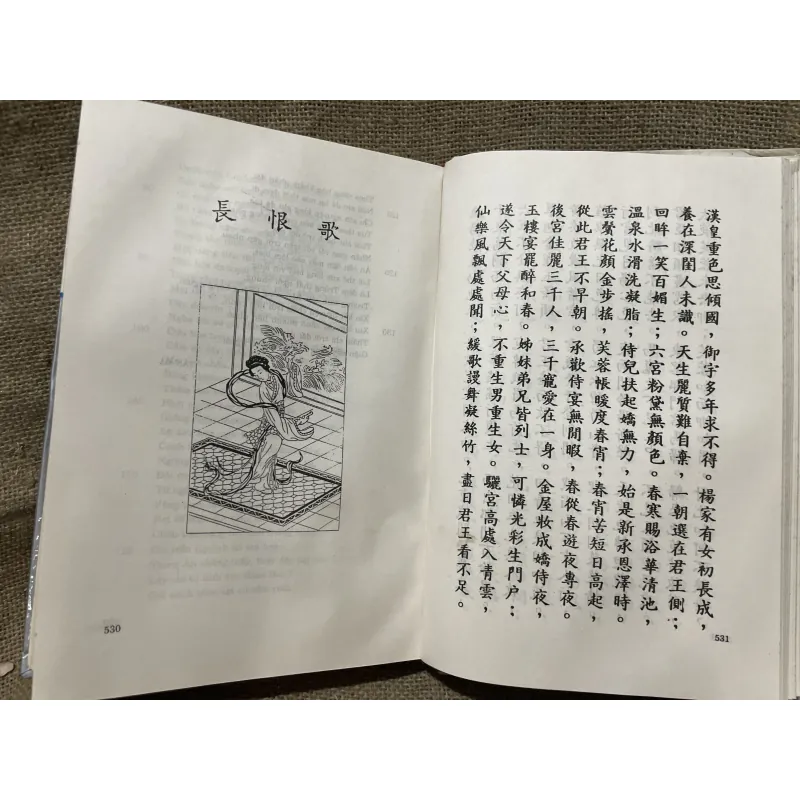 長恨歌
530
漢皇重色思傾國，御宇多年求不得。楊家有女初長成，
養在深閨人未識。天生麗質難自棄，一朝選在君王側；
回眸一笑百媚生；六宮粉黛無顏色。春寒賜浴華清池，
溫泉水滑洗凝脂；侍兒扶起嬌無力，始是新承恩澤時。
雲鬢花顏金步搖，芙蓉帳暖度春宵；春宵苦短日高起，
從此君王不早朝。承歡侍宴無閒暇，春從春遊夜專夜。
後宮佳麗三千人，三千寵愛在一身。金屋妝成嬌侍夜，
玉樓宴罷醉和春。姊妹弟兄皆列士，可憐光彩生門户；
遂令天下父母心，不重生男重生女。驪宮高處入青雲，
仙樂風飄處處聞；緩歌謾舞凝絲竹，盡日君王看不足。
531